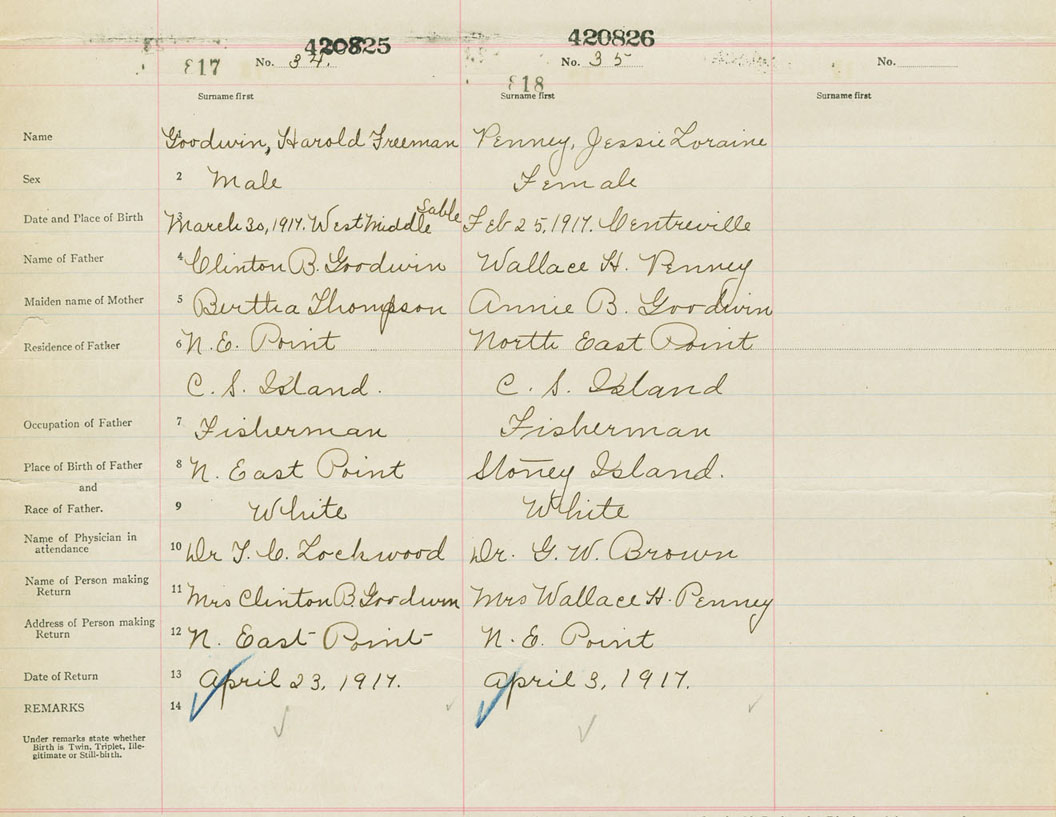 420825 420826
817 No. 34. No. 35 No.
818
Surname first Surname first Surname first
Name 1 Goodwin, Harold Freeman Penney, Jessie Loraine
Sex 2 Male Female
Date and Place of Birth 3 March 30, 1917. West Middle Sable Feb 25, 1917. Centreville
Name of Father 4 Clinton B. Goodwin Wallace H. Penney
Maiden name of Mother 5 Bertha Thompson Annie B. Goodwin
Residence of Father 6 N. E. Point North East Point
C. S. Island. C. S. Island
Occupation of Father 7 Fisherman Fisherman
Place of Birth of Father 8 N. East Point Stoney Island.
and
Race of Father. 9 White White
Name of Physician in
attendance 10 Dr T. C. Lockwood Dr. G. W. Brown
Name of Person making
Return 11 Mrs Clinton B. Goodwin Mrs Wallace H. Penney
Address of Person making
Return 12 N. East Point N. E. Point
Date of Return 13 April 23, 1917. April 3, 1917.
REMARKS 14
Under remarks state whether
Birth is Twin, Triplet, Ille-
gitimate or Still-birth.